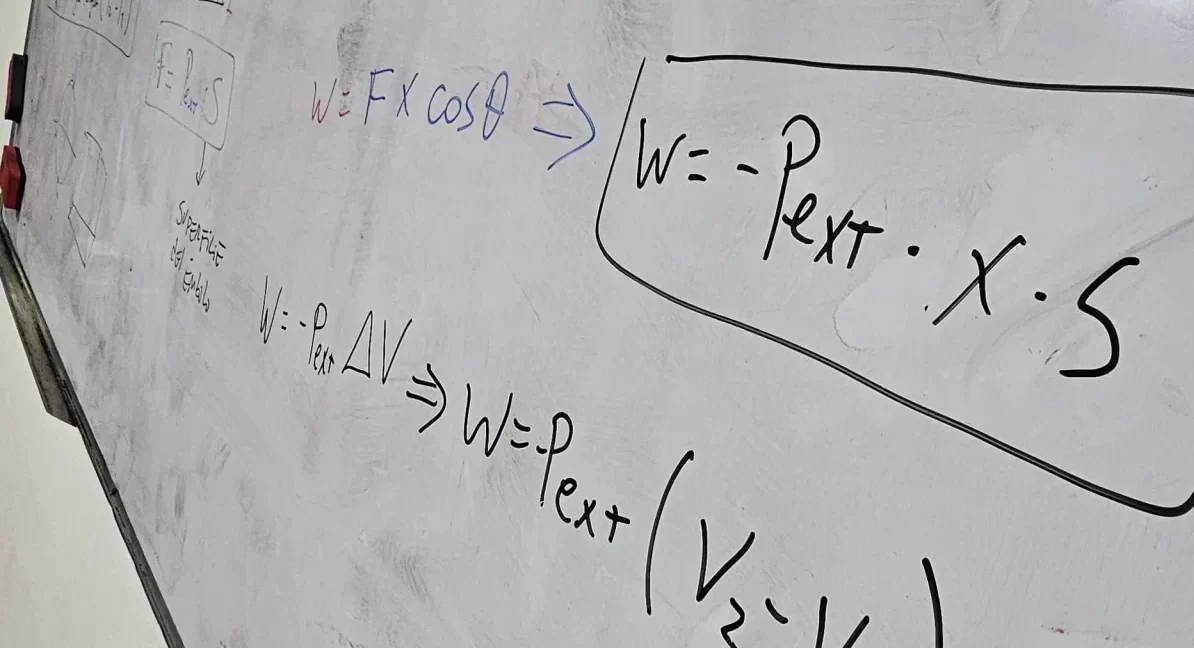 F = Pext · S
SUPERFICIE
del
Émbolo
W = F x cos θ ⇒ W = - Pext · x · S
W = - Pext ΔV ⇒ W = - Pext (V2 - V